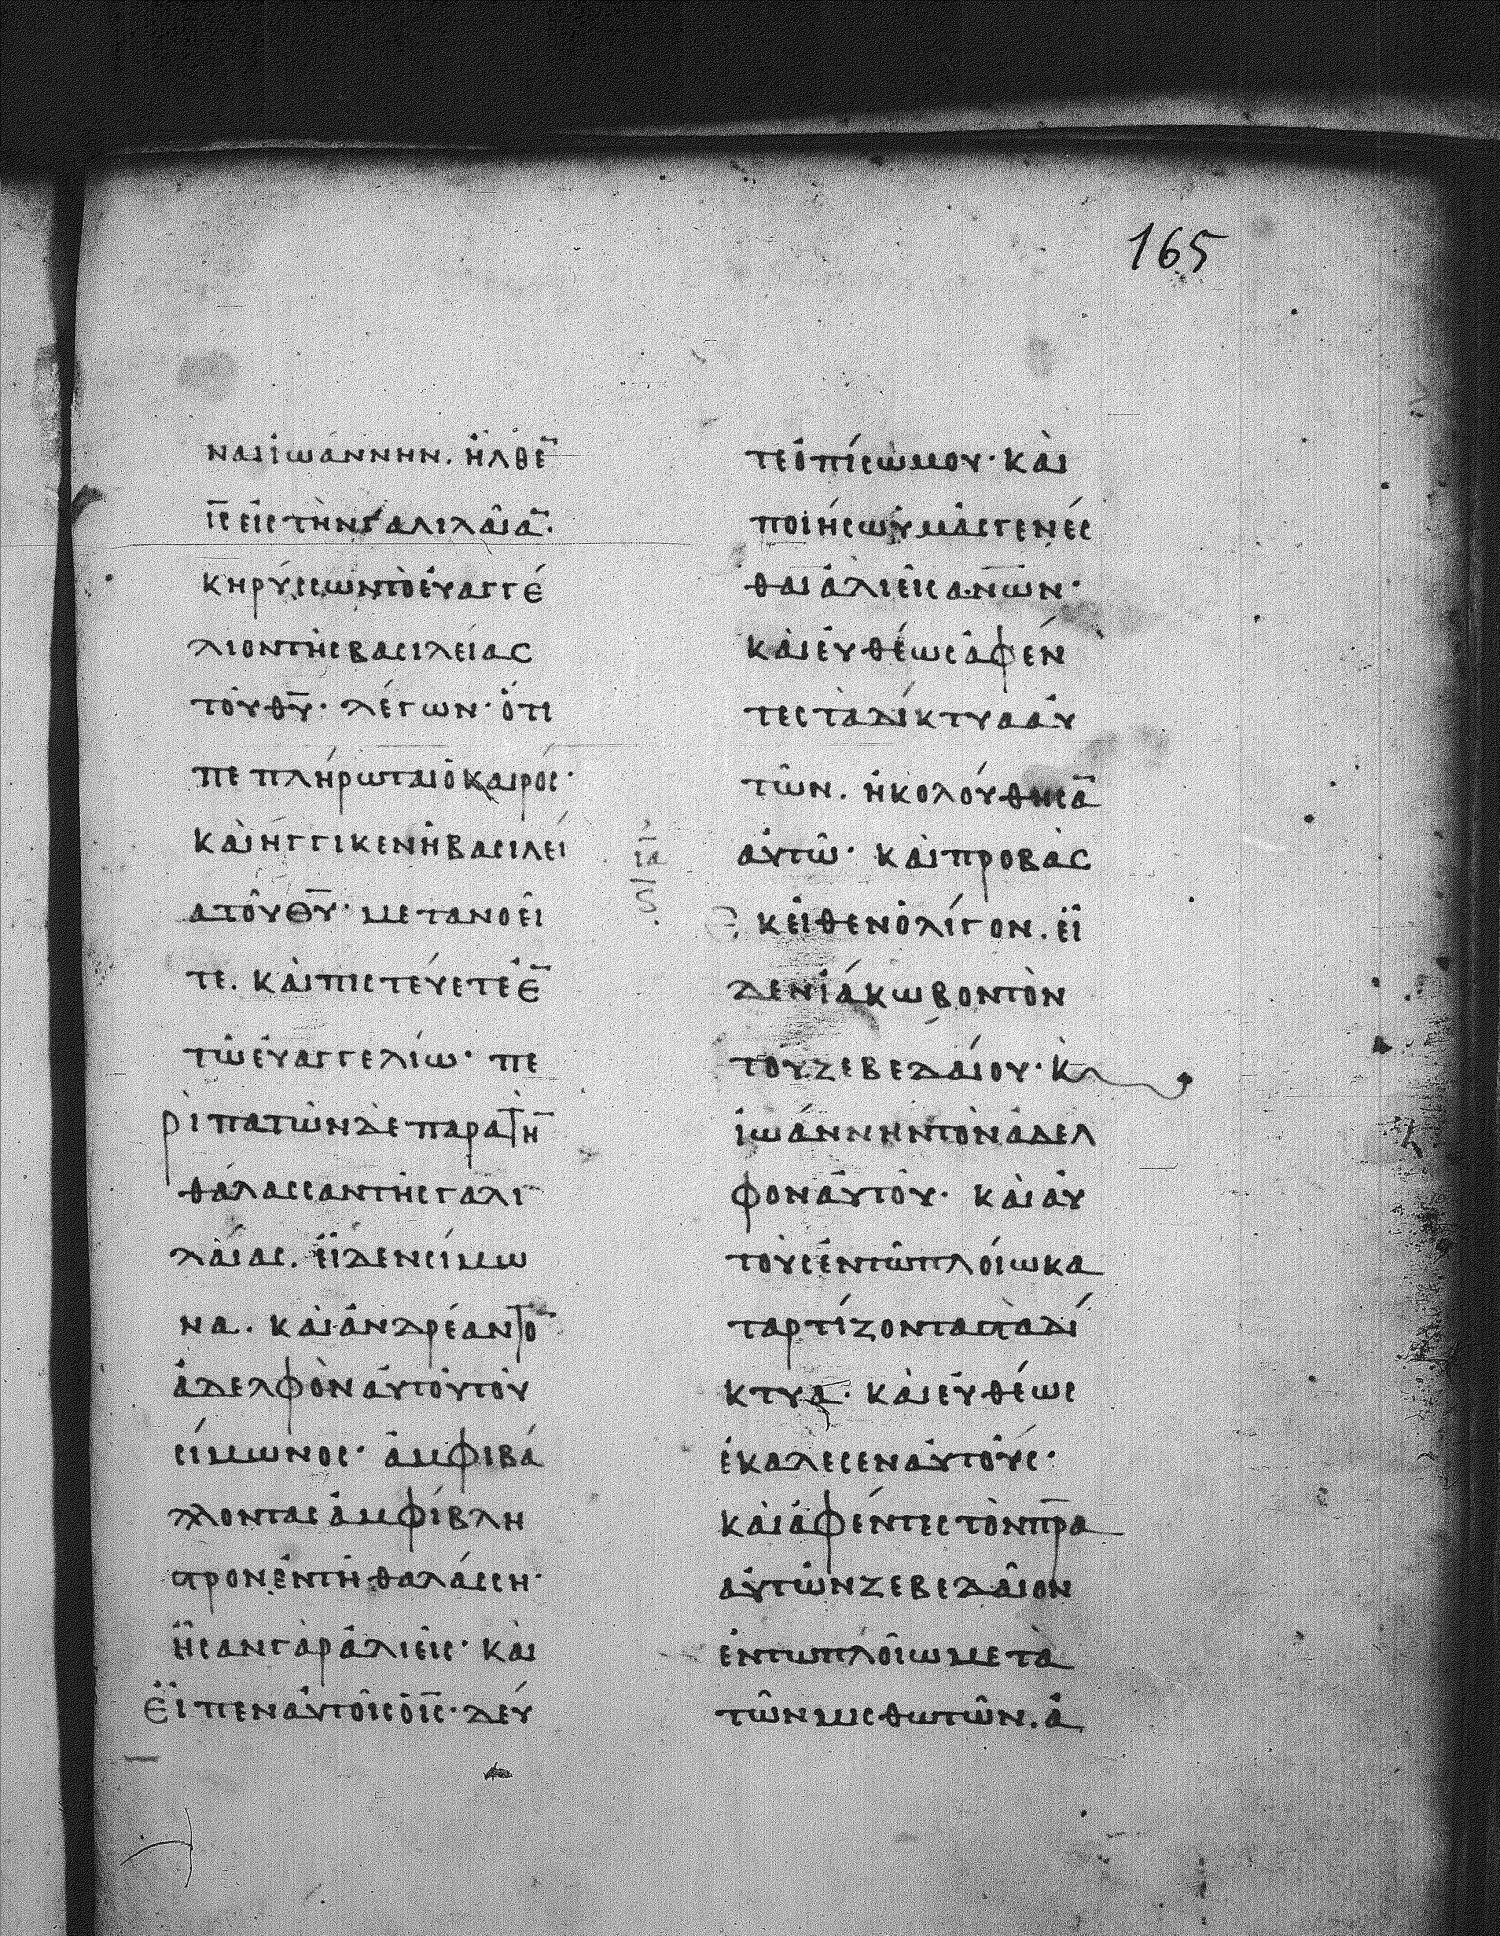 165
ναι ἰωάννην. ἦλθε̄
ι̅ς̅ εἰς τὴν γαλιλαίᾱ.
κηρύσσων τὸ ἐυαγγέ
λιον τῆς βασιλείας
τοῦ θ̅υ̅· λέγων· ὅτι
πεπλήρωται ὁ καιρός·
καὶ ἤγγικεν ἡ βασιλεί
α τοῦ θ̅υ̅· μετανοεῖ
τε. καὶ πιστεύετε ἐ̄
τῶ ἐυαγγελίω· πε
ριπατῶν δὲ παρὰ τὴ̄
θάλασσαν τῆς γαλι
λαίας. εἶδεν σίμω
να. καὶ ἀνδρέαν τὸ̄
ἀδελφὸν ἀυτοῦ τοῦ
σίμωνος· ἀμφιβά
λλοντας ἀμφίβλη
στρον ἐν τῆ θαλάσση·
ἦσαν γὰρ ἁλιεῖς· καὶ
εἶπεν ἀυτοῖς ὁ ι̅ς̅· δεύ
ια
ς
τε ὀπίσω μου· καὶ
ποιήσω ὑμᾶς γενές
θαι ἁλιεῖς α̅ν̅ω̅ν̅·
καὶ ἐυθέως ἀφέν
τες τὰ δίκτυα ἀυ
τῶν. ἠκολούθησᾱ
ἀυτῶ· καὶ προβὰς
ἐκεῖθεν ὀλίγον. εἶ
δεν ἰάκωβον τὸν
τοῦ ζεβεδαίου· κ̀
ἰωάννην τὸν ἀδελ
φὸν ἀυτοῦ· καὶ ἀυ
τοὺς ἐν τῶ πλοίω κα
ταρτίζοντας τὰ δί
κτυα· καὶ ἐυθέως
ἐκάλεσεν ἀυτοῦς·
καὶ ἀφέντες τὸν π̅ρ̅α̅
ἀυτῶν ζεβεδαῖον
ἐν τῶ πλοίω μετὰ
τῶν μισθωτῶν. ἀ